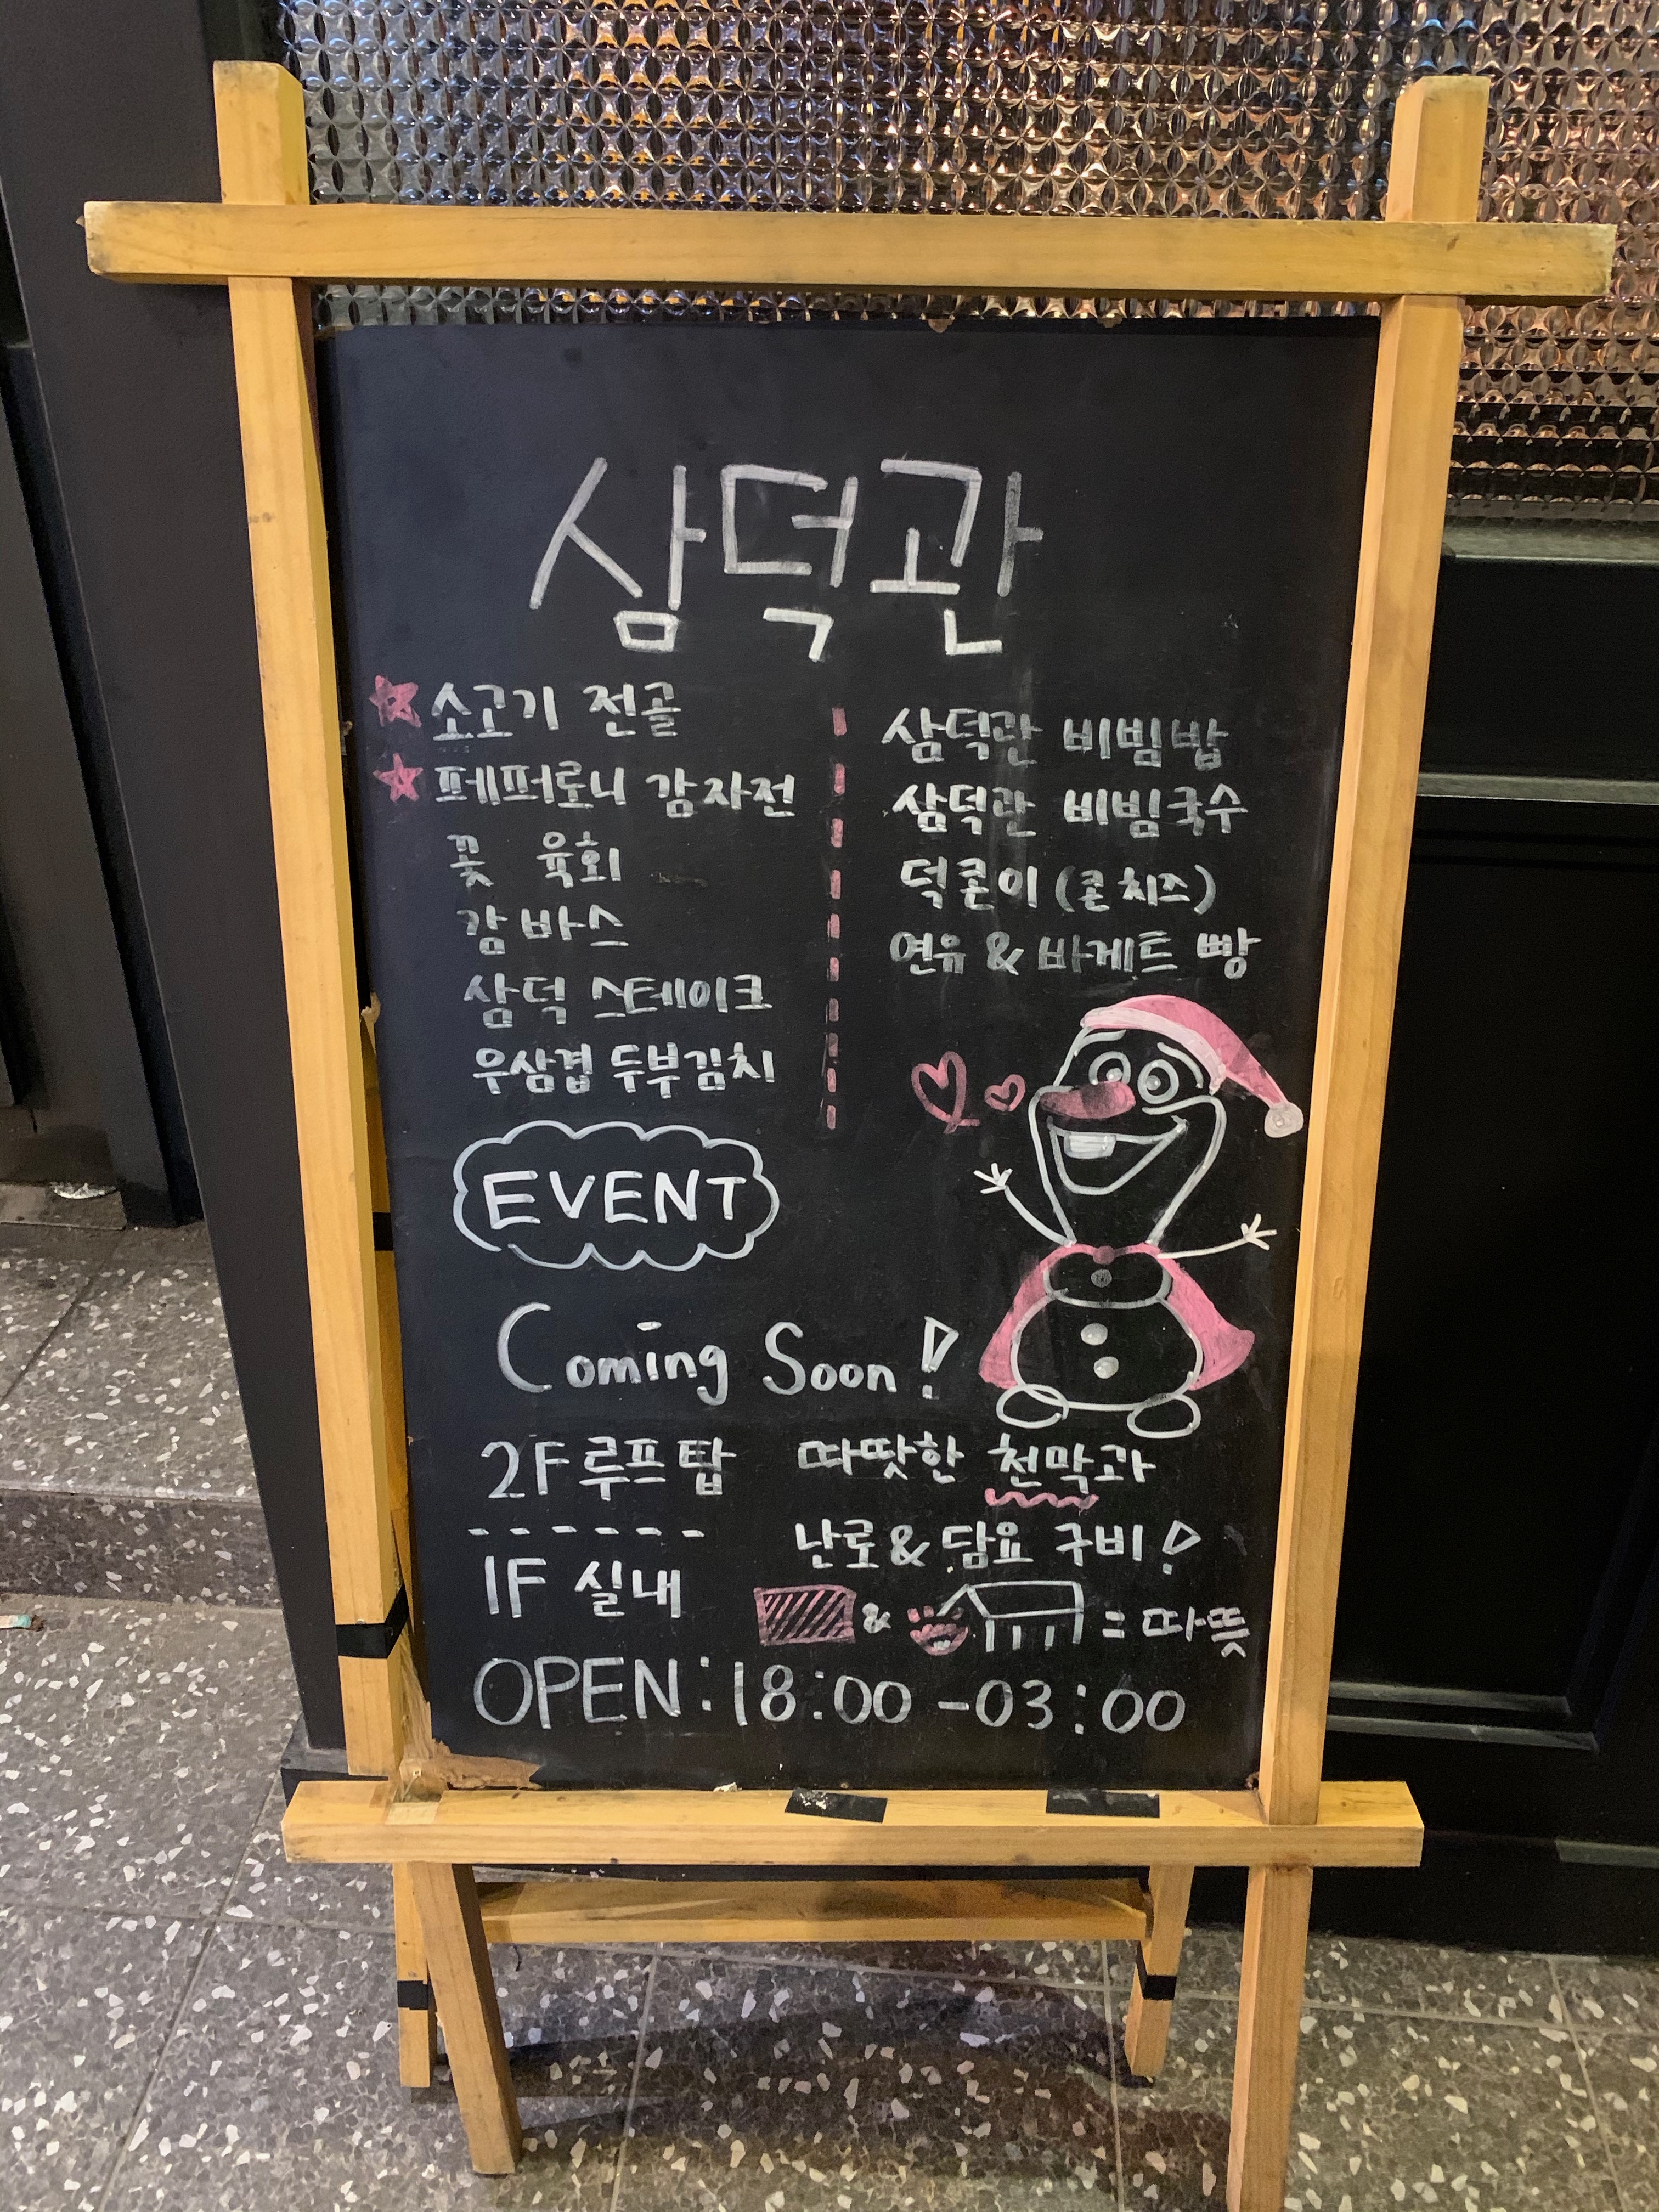 삼덕관
소고기 전골
페퍼로니 감자전
꽃 육회
감바스
삼덕 스테이크
우삼겹 두부김치
삼덕관 비빔밥
삼덕관 비빔국수
덕콘이 (콘치즈)
연유 & 바게트 빵
EVENT
Coming Soon!
2F 루프탑
1F 실내
따땃한 천막과
난로 & 담요 구비!
& = 따뜻
OPEN : 18:00 - 03:00